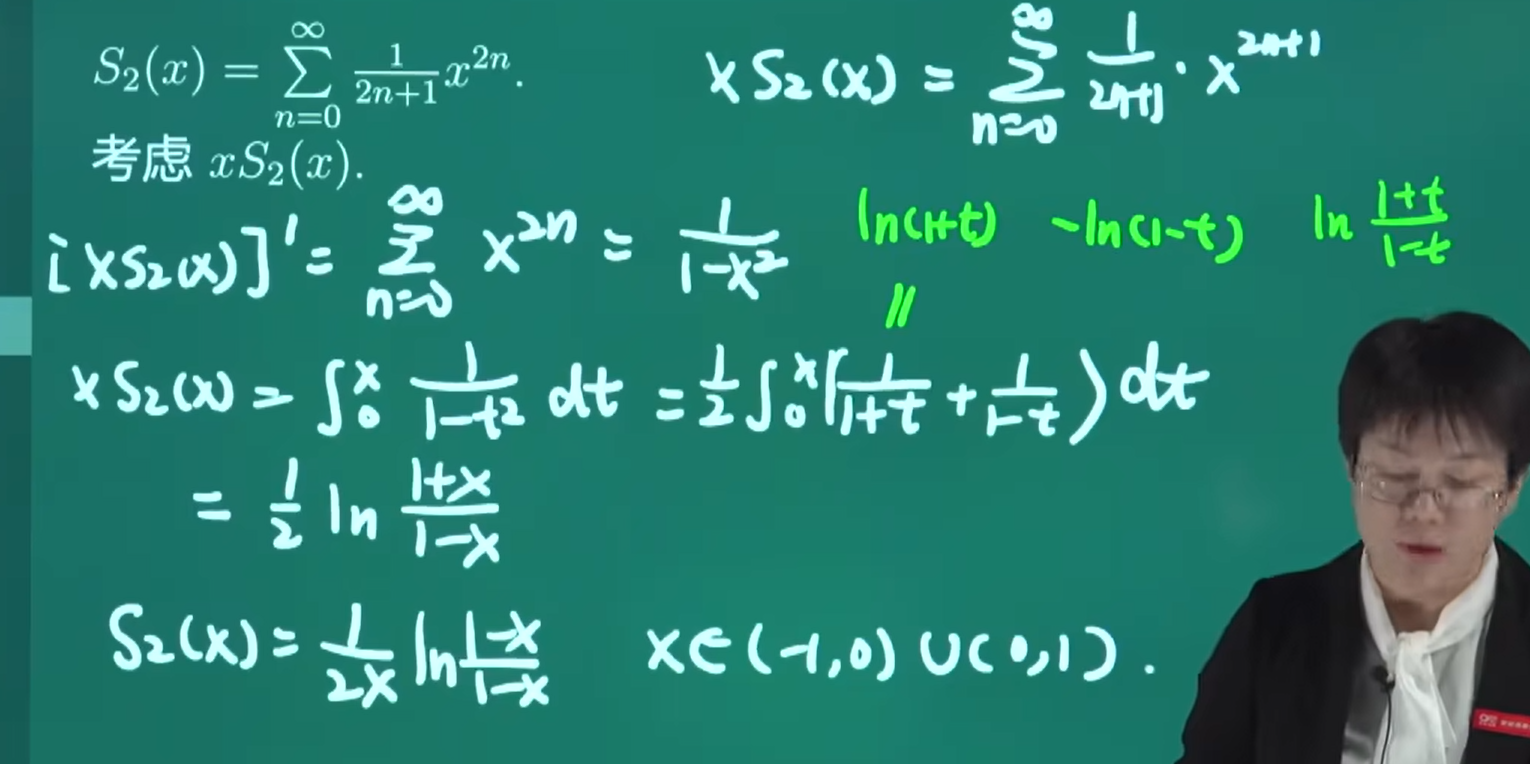 S₂(x) = ∑_{n=0}^{∞} \frac{1}{2n+1} x^{2n}.
考虑 xS₂(x).
xS₂(x) = ∑_{n=0}^{∞} \frac{1}{2n+1} · x^{2n+1}
[xS₂(x)]' = ∑_{n=0}^{∞} x^{2n} = \frac{1}{1-x²}
ln(1+t) -ln(1-t) ln \frac{1+t}{1-t}
||
xS₂(x) = ∫₀ˣ \frac{1}{1-t²} dt = \frac{1}{2} ∫₀ˣ (\frac{1}{1+t} + \frac{1}{1-t}) dt
= \frac{1}{2} ln \frac{1+x}{1-x}
S₂(x) = \frac{1}{2x} ln \frac{1-x}{1-x} x∈(-1,0)∪(0,1).